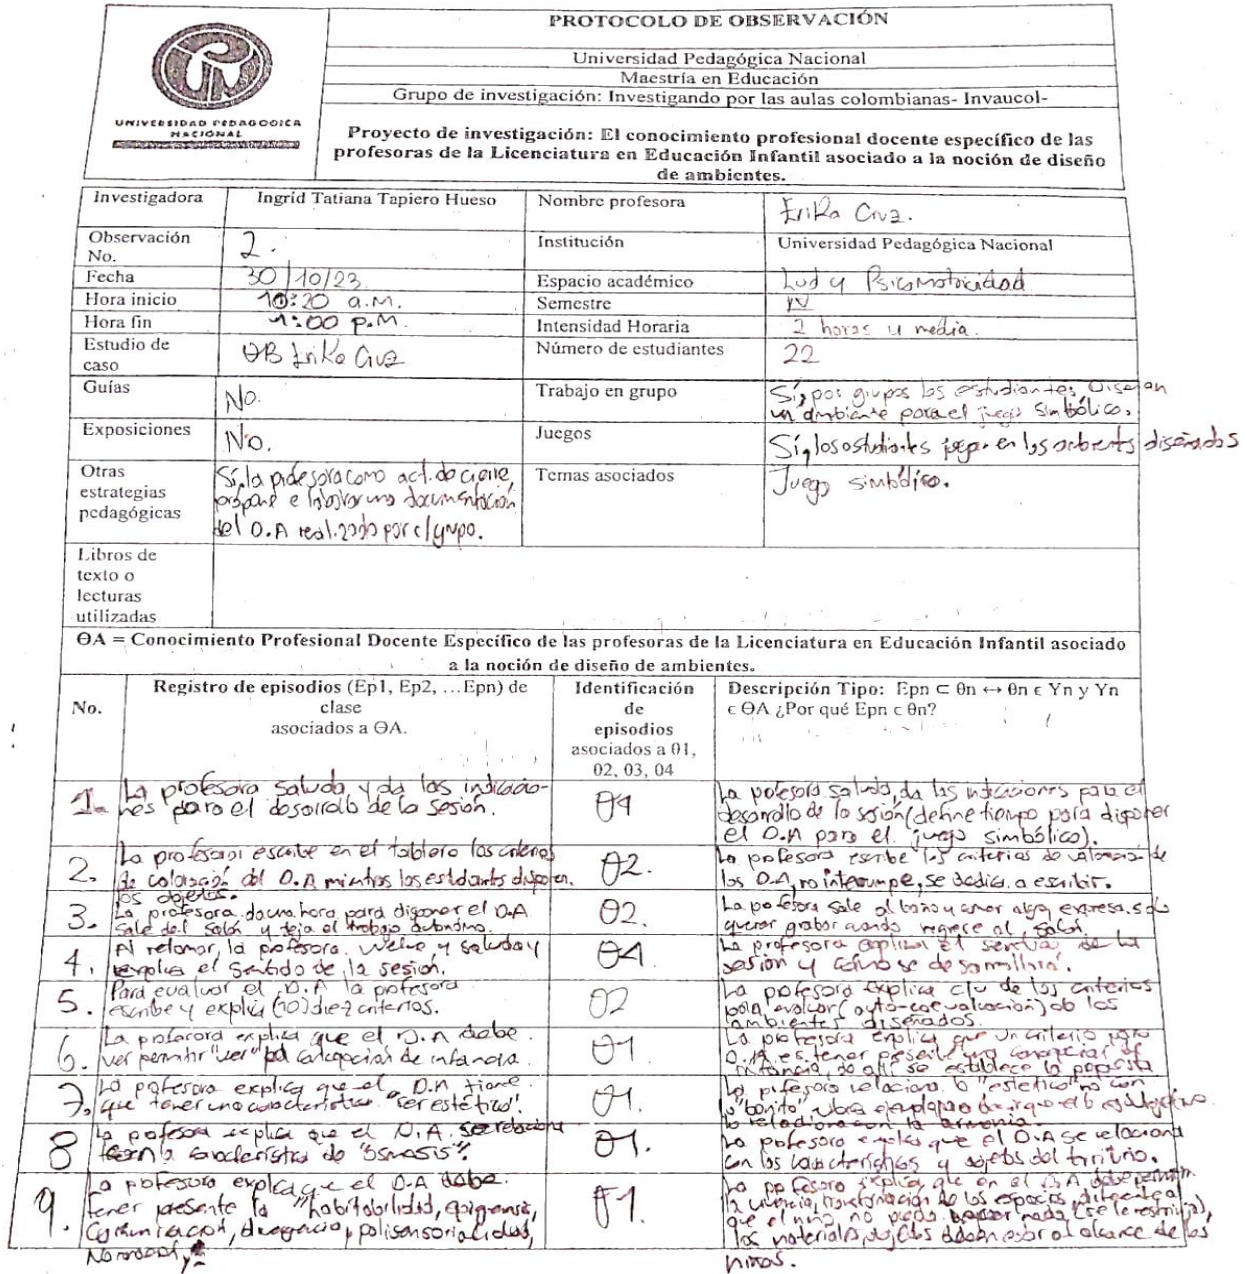 PROTOCOLO DE OBSERVACIÓN
Universidad Pedagógica Nacional
Maestría en Educación
Grupo de investigación: Investigando por las aulas colombianas- Invaucol-
UNIVERSIDAD PEDAGOGICA
NACIONAL
Proyecto de investigación: El conocimiento profesional docente específico de las
profesoras de la Licenciatura en Educación Infantil asociado a la noción de diseño
de ambientes.
Investigadora Ingrid Tatiana Tapiero Hueso Nombre profesora Erika Cruz.
Observación No. 2. Institución Universidad Pedagógica Nacional
Fecha 30/10/23 Espacio académico Lud y Psicomotricidad
Hora inicio 10:20 a.m. Semestre IV
Hora fin 1:00 p.m. Intensidad Horaria 2 horas y media.
Estudio de caso θB Erika Cruz Número de estudiantes 22
Guías No. Trabajo en grupo Sí, por grupos los estudiantes diseñan
un ambiente para el juego simbólico.
Exposiciones No. Juegos Sí, los estudiantes juegan en los ambients diseñados
Otras estrategias pedagógicas Sí, la profesora como act. de cierre,
propone elaborar una documentación
del D.A realizado por c/grupo.
Temas asociados Juego simbólico.
Libros de
texto o
lecturas
utilizadas
ΘA = Conocimiento Profesional Docente Específico de las profesoras de la Licenciatura en Educación Infantil asociado
a la noción de diseño de ambientes.
No.
Registro de episodios (Ep1, Ep2, ...Epn) de
clase
asociados a ΘA.
Identificación
de
episodios
asociados a θ1,
θ2, θ3, θ4
Descripción Tipo: Epn ⊂ θn ↔ θn ϵ Yn y Yn
ϵ ΘA ¿Por qué Epn c θn?
1. La profesora saluda y da las indicacio-
nes para el desarrollo de la sesión.
θ4
La profesora saluda, da las indicaciones para el
desarrollo de la sesión (define tiempo para disponer
el D.A para el juego simbólico).
2. La profesora escribe en el tablero los criterios
de valoración del D.A mientras los estudiantes disponen
los objetos.
θ2.
La profesora escribe los criterios de valoración de
los D.A, no interrumpe, se dedica a escribir.
3. La profesora da una hora para disponer el D.A
sale del salón y deja el trabajo autónomo.
θ2.
La profesora sale al baño y a comer algo, expresa
querer grabar cuando regrese al salón.
4. Al retomar, la profesora vuelve y saluda y
explica el sentido de la sesión.
θ4.
La profesora explica el sentido de la
sesión y cómo se desarrollará.
5. Para evaluar el D.A la profesora
escribe y explica (10) diez criterios.
θ2
La profesora explica c/u de los criterios
para evaluar (auto-coevaluación) de los
ambientes diseñados.
6. La profesora explica que el D.A debe
ver permitir "ver" concepción de infancia.
θ1.
La profesora explica que un criterio para
D.A es tener presente una concepción de
infancia, de allí se establece la propuesta
7. La profesora explica que el D.A tiene
que tener una característica "ser estético".
θ1.
La profesora relaciona lo "estético" no con
lo "bonito"
lo relaciona con la armonía.
8 La profesora explica que el D.A. se relaciona
con la característica de "ósmosis".
θ1.
La profesora explica que el D.A se relaciona
con las características y sujetos del territorio.
9. La profesora explica que el D.A debe
tener presente la "habitabilidad, epigénesis,
comunicación, divergencia, polisensorialidad,
θ1.
La profesora explica que en el D.A debe permitir
la vivencia, transformación de los espacios,
que el niño no pueda hacer nada (se le restrinja),
los materiales, objetos deben estar al alcance de los
niños.